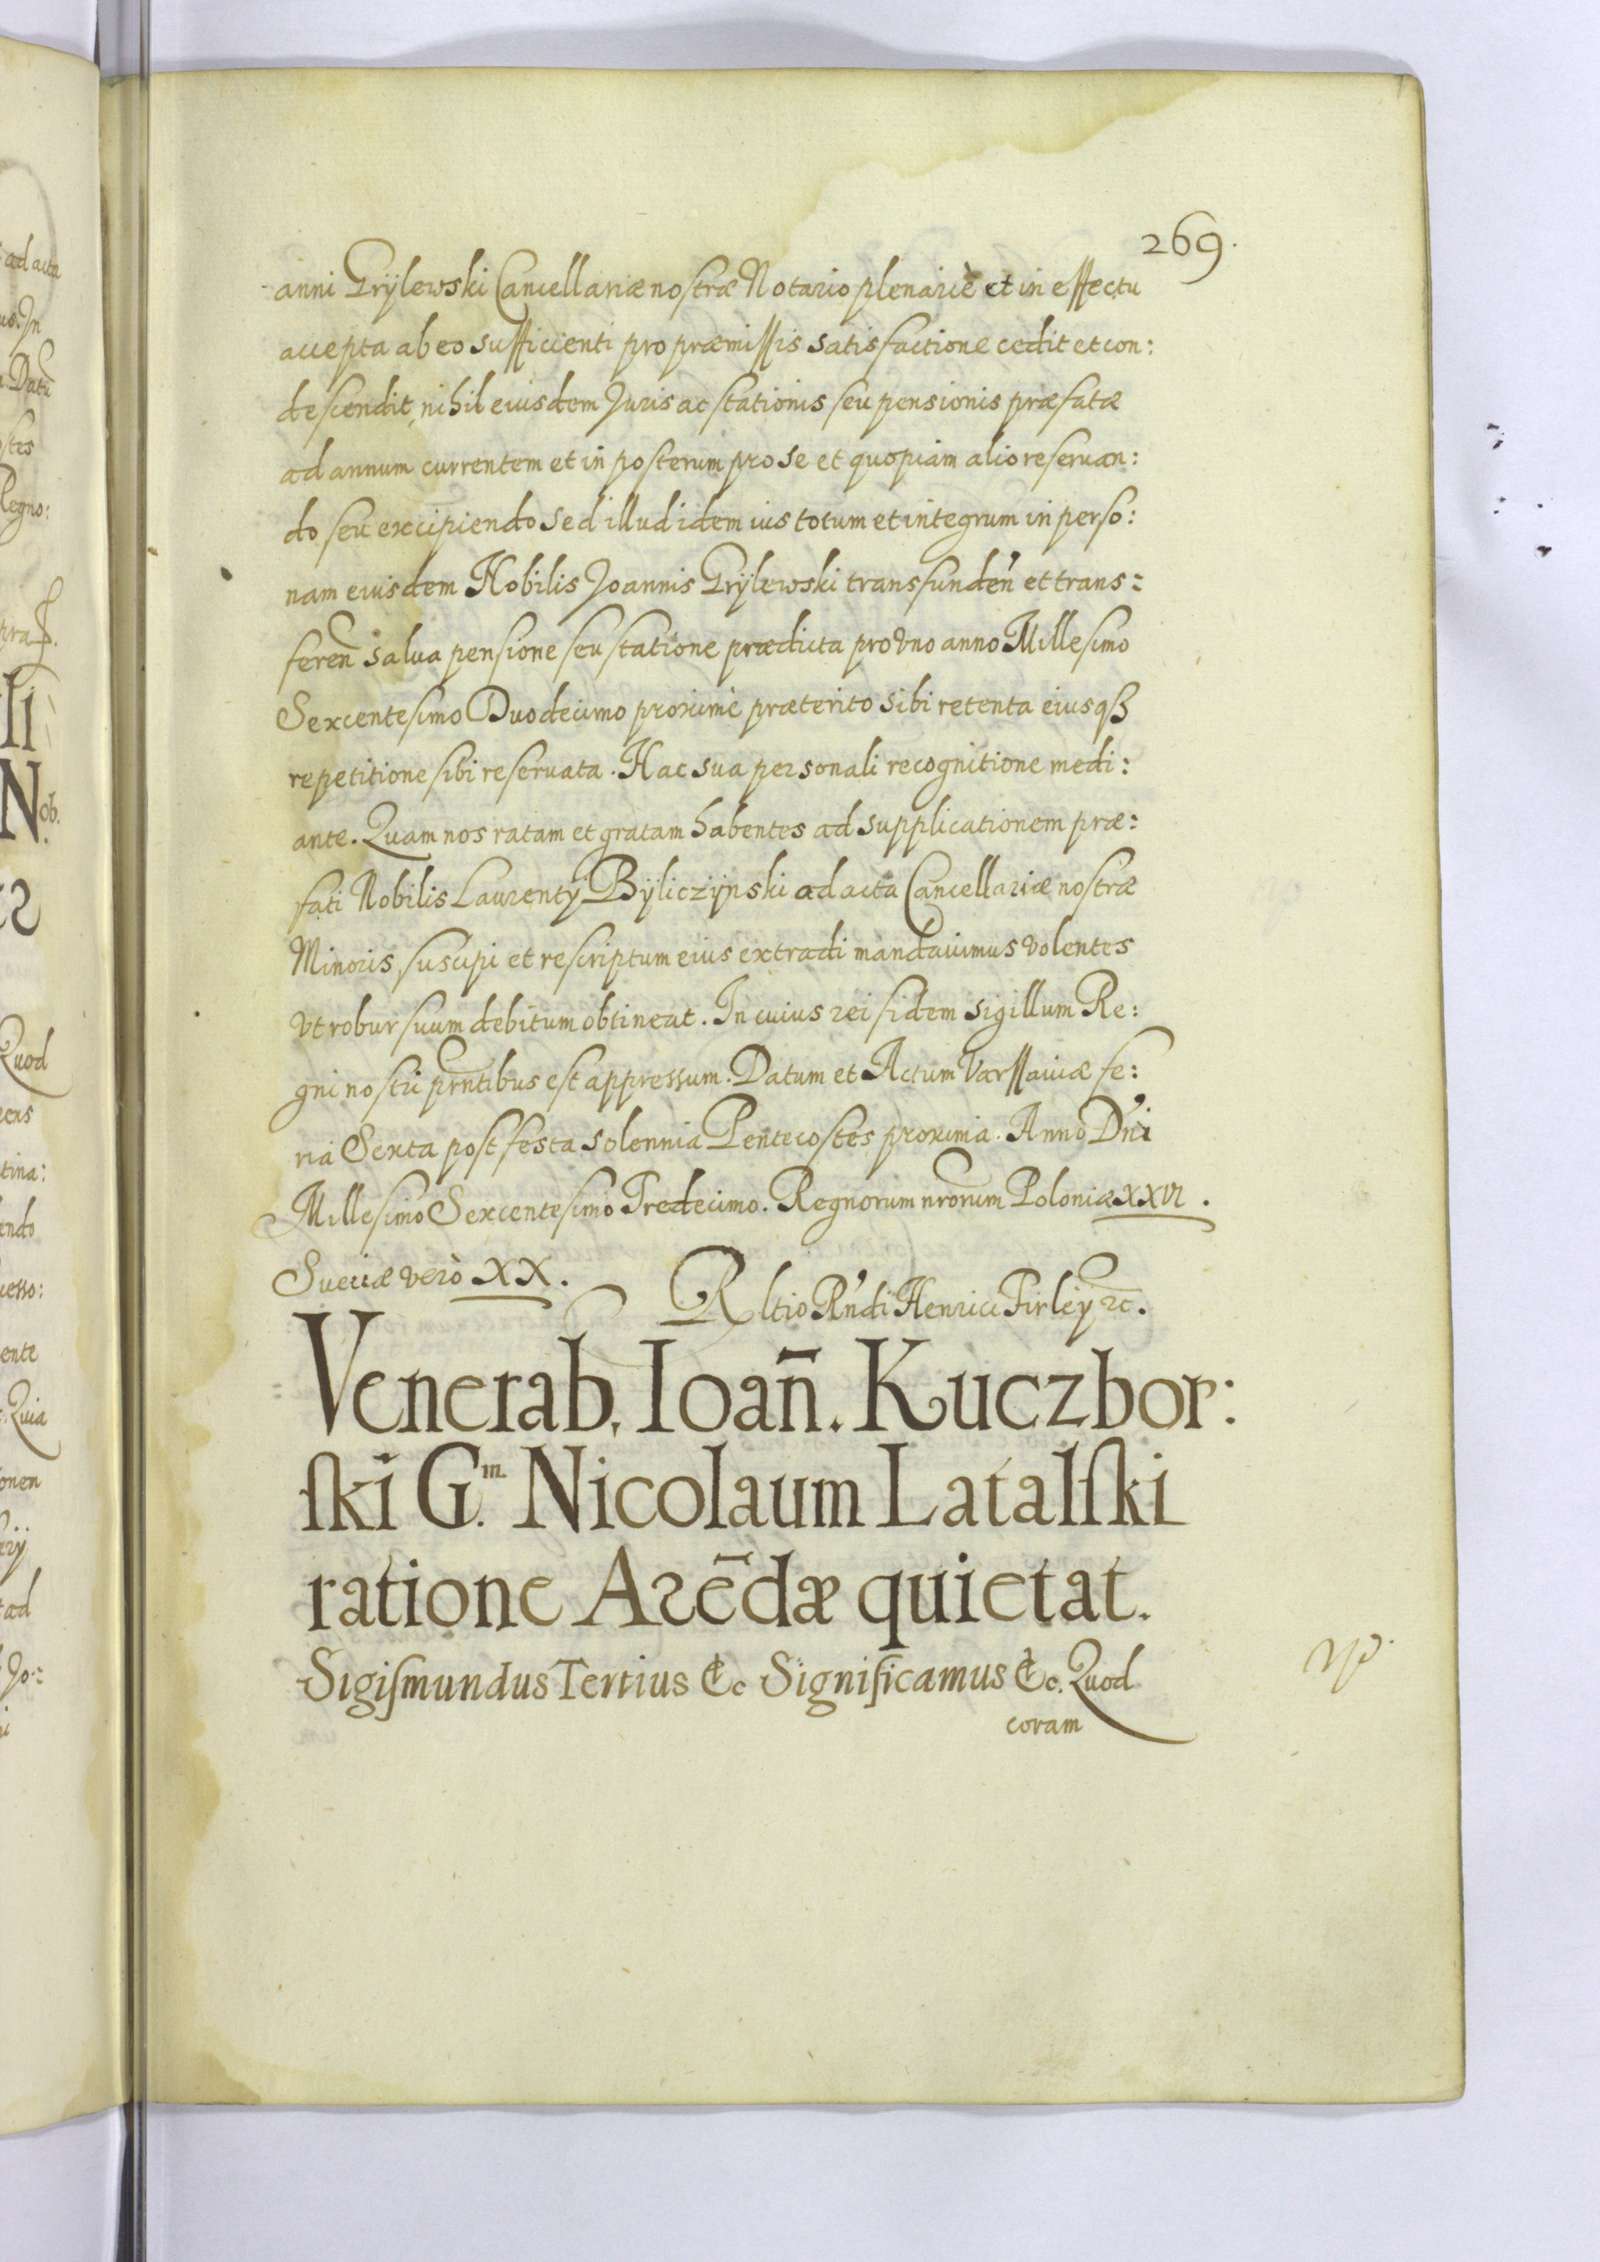 269.
anni Grÿlewski Cancellariæ nostræ Notario plenariè et in effectu
accepta ab eo sufficienti pro præmissis satisfactione cedit et con:
descendit, nihil eiusdem Juris ac stationis seu pensionis præfatæ
ad annum currentem et in posterum pro se et quopiam alio reseruan:
do seu excipiendo sed illud idem ius totum et integrum in perso:
nam eiusdem Nobilis Joannis Grÿlewski transfunden̄ et trans:
feren̄ salua pensione seu statione prædicta pro vno anno Millesimo
Sexcentesimo Duodecimo proximè præterito sibi retenta eiusqȝ
repetitione sibi reseruata. Hac sua personali recognitione medi:
ante. Quam nos ratam et gratam habentes ad supplicationem præ:
fati Nobilis Laurentÿ Bÿliczÿnski ad acta Cancellariæ nostræ
Minoris suscipi et rescriptum eius extradi mandauimus volentes
vt robur suum debitum obtineat. In cuius rei fidem sigillum Re:
gni nostri prn̄tibus est appressum. Datum et Actum Varssauiæ fe:
ria Sexta post festa solennia Pentecostes proxima. Anno Dn̄i
Millesimo Sexcentesimo Tredecimo. Regnorum nr̄orum Poloniæ XXVI.
Sueciæ verò XX.
Rltio Rn̄di Henrici Firleÿ ꝛc̄.
Venerab. Ioan̄. Kuczbor:
ſki G.m. Nicolaum Latalſki
ratione Arēdæ quietat.
Sigiſmundus Tertius &c Significamus &c. Quod
coram